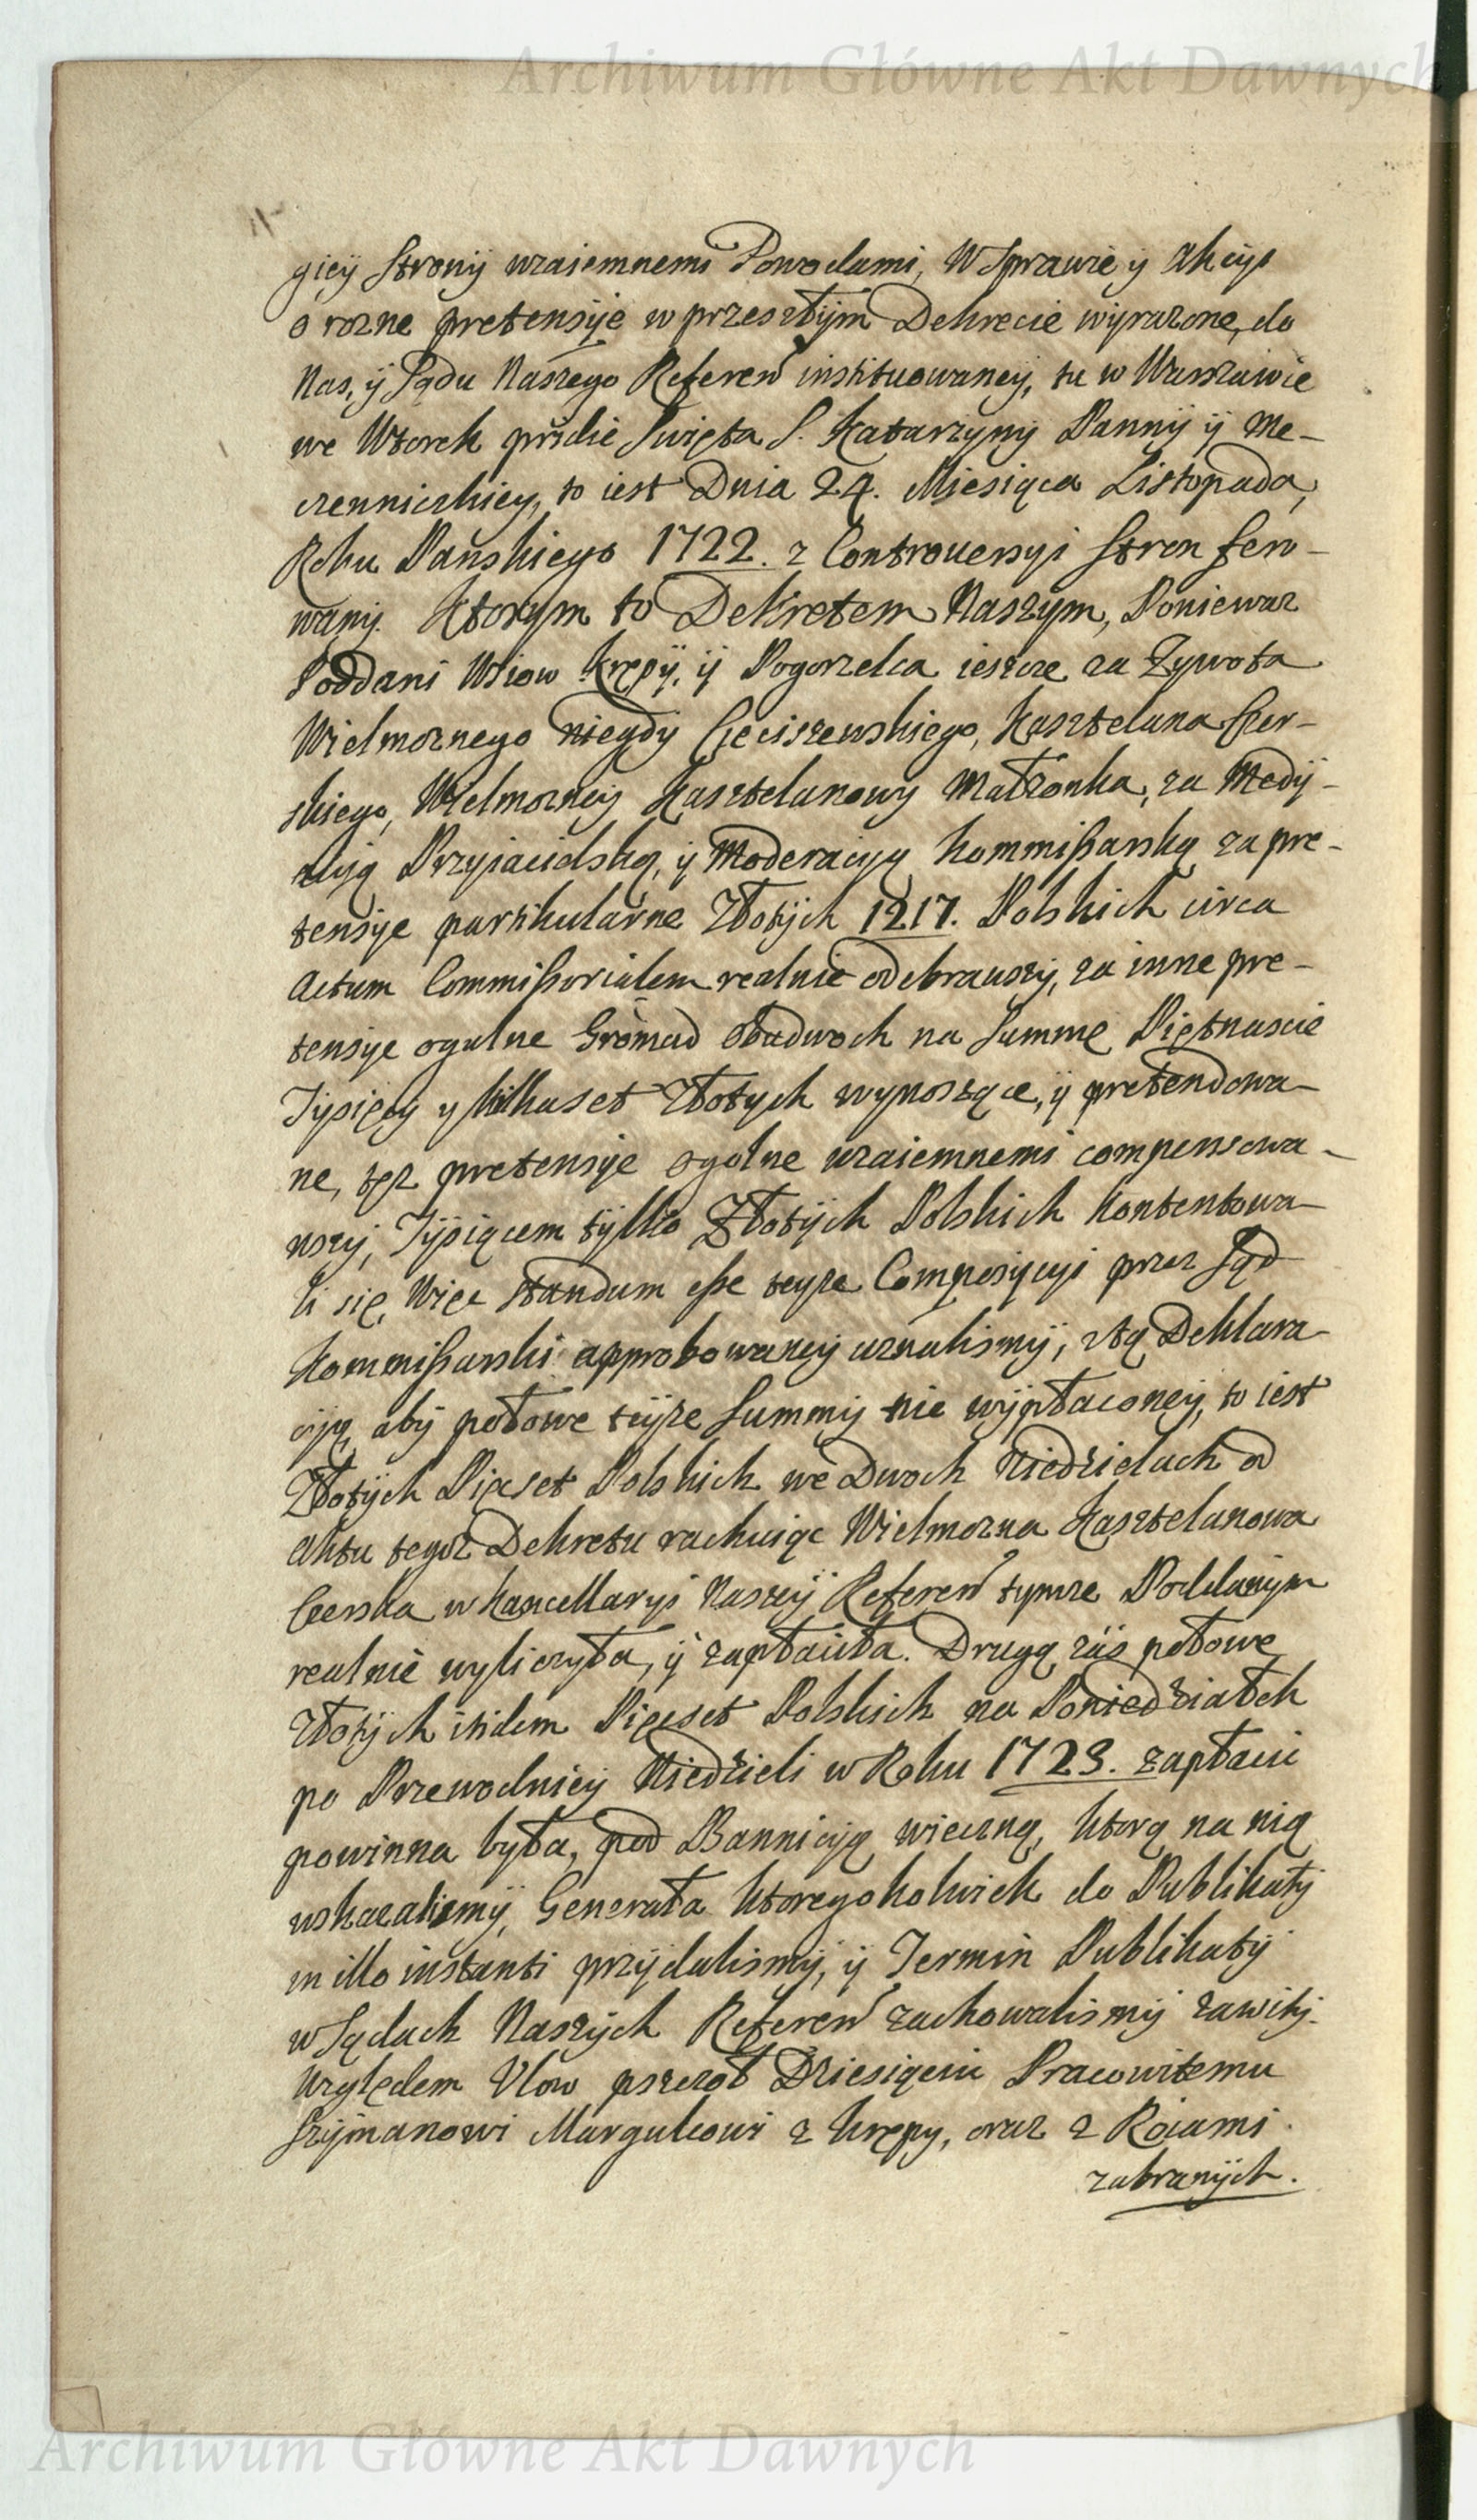 Archiwum Główne Akt Dawnych
giey Strony wzaiemnemi Powodami, W Sprawie y Akcyi
o rozne pretensÿie w przeszłÿm Dekrecie wÿrazone, do
Nas, ÿ Sądu Naszego Referen instituowaneÿ, tu w Warszawie
we Wtorek pridie Swięta S. Katarzyny Pannÿ ÿ Me-
czenniczkiey, to iest Dnia 24. Miesiąca Listopada,
Roku Panskiego 1722. z Controuersyi Stron fero-
wanÿ. Ktorym to Dekretem Naszym, Poniewaz
Poddani Wsiow Krępÿ, ÿ Pogorzelca ieszcze za Zywota
Wielmoznego niegdy Cieciszewskiego, Kasztelana Czer-
skiego, Wielmozney Kasztelanowy Małzonka, za Medÿ-
acÿą Przyiacielską, ÿ Moderacyą Kommissarską za pre-
tensye partikularne Złotÿch 1217. Polskich circa
Actum Commissorialem realnie odebrawszÿ, za inne pre-
tensye ogulne Gromad obudwoch na Summę Piętnascie
Tysięcy y kilkaset Złotych wynoszące, ÿ pretendowa-
ne, tęz pretensye ogolne wzaiemnemi compensowa-
wszÿ, Tÿsiącem tÿlko Złotÿch Polskich kontentowa-
li się, Więc standum esse teyze Composicyi przez Sąd
Kommissarski approbowaneÿ uznalismÿ, ztą Deklara-
cÿą, abÿ połowe teÿze Summÿ nie wÿpłaconeÿ, to iest
Złotÿch Pięcset Polskich we Dwoch Niedzielach od
Aktu tegoz Dekretu rachuiąc Wielmozna Kasztelanowa
Czerska w Kancellaryi Naszeÿ Referen tymze Poddanÿm
realnie wyliczyła, ÿ zapłaciła. Drugą zas połowe
Złotÿch itidem Pięcset Polskich na Poniedziałek
po Przewodniey Niedzieli w Roku 1723. zapłacic
powinna była, pod Bannicyą wieczną, ktorą na nią
wskazalismÿ, Generała ktoregokolwiek do Publikatÿ
in illo instanti przÿdalismÿ, ÿ Termin Publikatÿ
w Sądach Naszÿch Referen zachowalismÿ zawitÿ.
Względem Ulow pszczoł Dziesięciu Pracowitemu
Szÿmanowi Margulcowi z Krępy, oraz z Roiami
zabranÿch.
Archiwum Główne Akt Dawnych